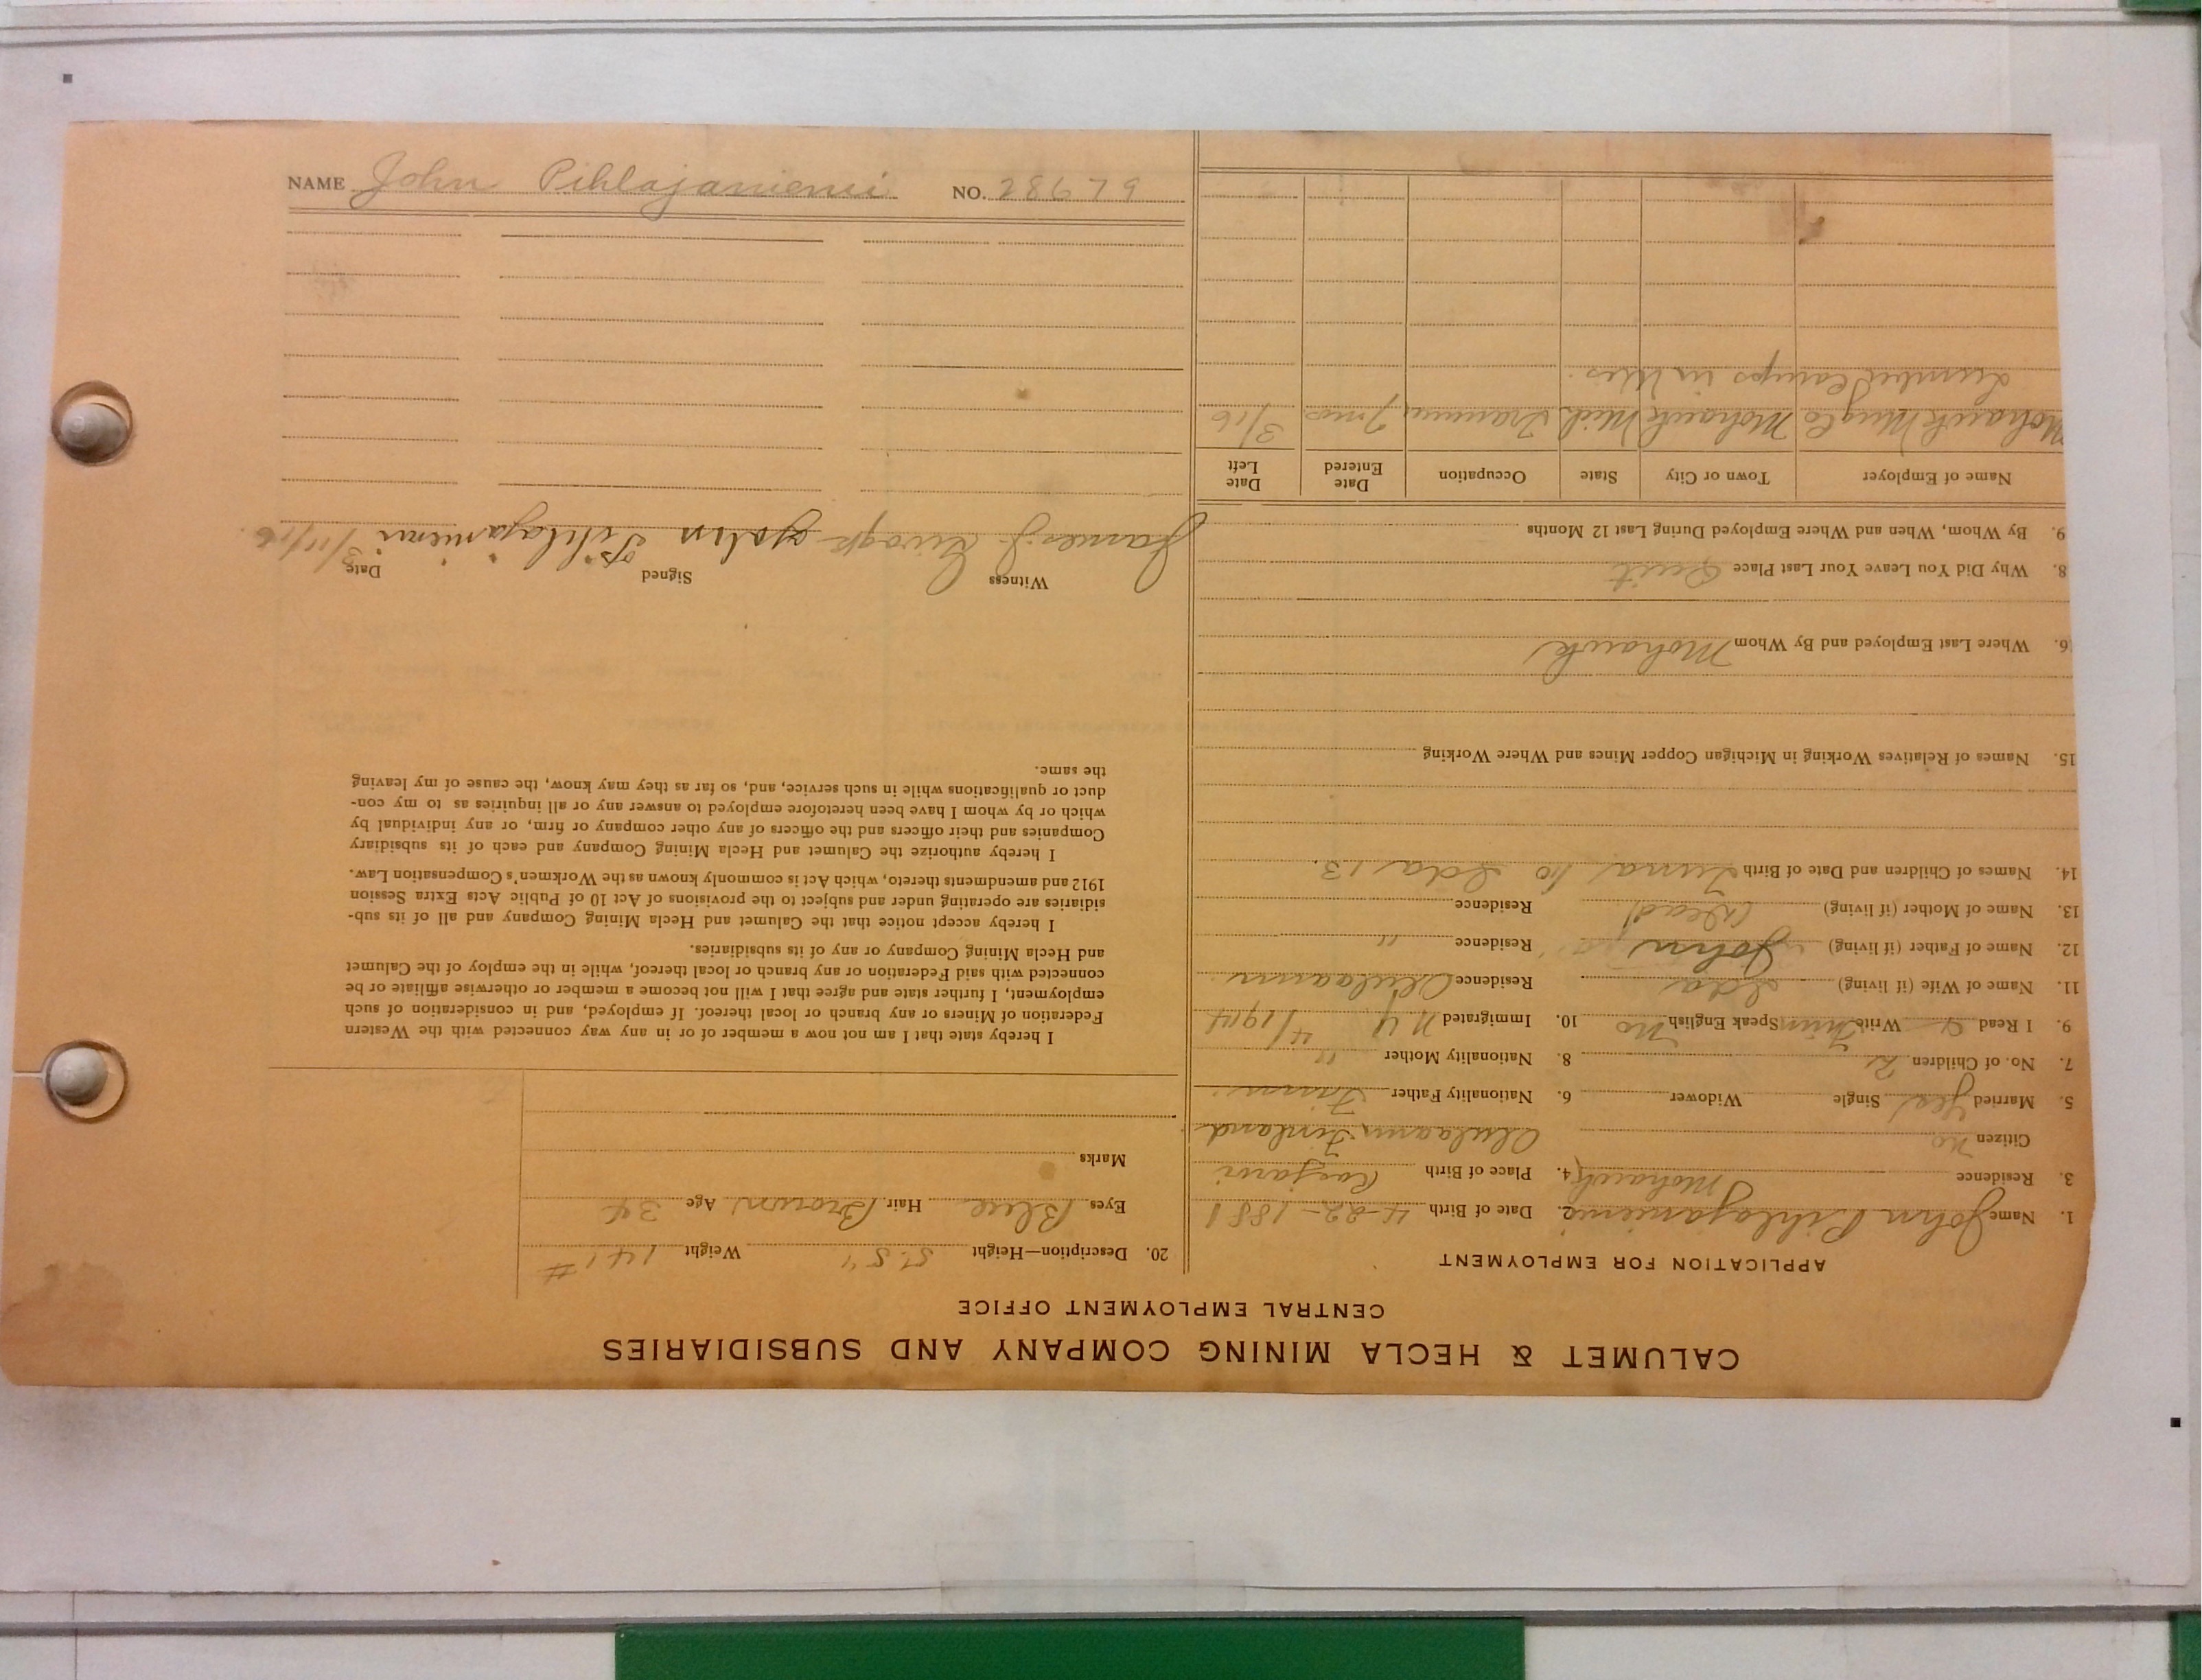 CALUMET & HECLA MINING COMPANY AND SUBSIDIARIES
CENTRAL EMPLOYMENT OFFICE
APPLICATION FOR EMPLOYMENT
1. Name John Pihlajaniemi 2. Date of Birth 4-22-1881
3. Residence Mohawk 4. Place of Birth
Citizen no Finland
5. Married Yes Single Widower 6. Nationality Father Finn
7. No. of Children 2 8. Nationality Mother "
9. I Read & Write Finn Speak English No 10. Immigrated N Y 4/1914
11. Name of Wife (if living) Ida Residence
12. Name of Father (if living) John Residence "
13. Name of Mother (if living) (Dead) Residence
14. Names of Children and Date of Birth 10 Ida 13.
15. Names of Relatives Working in Michigan Copper Mines and Where Working
16. Where Last Employed and By Whom Mohawk
8. Why Did You Leave Your Last Place Quit
9. By Whom, When and Where Employed During Last 12 Months
Name of Employer Town or City State Occupation Date Entered Date Left
Mohawk Mng Co Mohawk Mich Trammer 7 mos 3/16
Lumber Camps in Wis.
20. Description—Height 5' 5" Weight 141 #
Eyes Blue Hair Brown Age 34
Marks
I hereby state that I am not now a member of or in any way connected with the Western
Federation of Miners or any branch or local thereof. If employed, and in consideration of such
employment, I further state and agree that I will not become a member or otherwise affiliate or be
connected with said Federation or any branch or local thereof, while in the employ of the Calumet
and Hecla Mining Company or any of its subsidiaries.
I hereby accept notice that the Calumet and Hecla Mining Company and all of its sub-
sidiaries are operating under and subject to the provisions of Act 10 of Public Acts Extra Session
1912 and amendments thereto, which Act is commonly known as the Workmen's Compensation Law.
I hereby authorize the Calumet and Hecla Mining Company and each of its subsidiary
Companies and their officers and the officers of any other company or firm, or any individual by
which or by whom I have been heretofore employed to answer any or all inquiries as to my con-
duct or qualifications while in such service, and, so far as they may know, the cause of my leaving
the same.
Witness Signed Date
James J. John Pihlajaniemi 3/11/16.
NAME John Pihlajaniemi NO. 28679